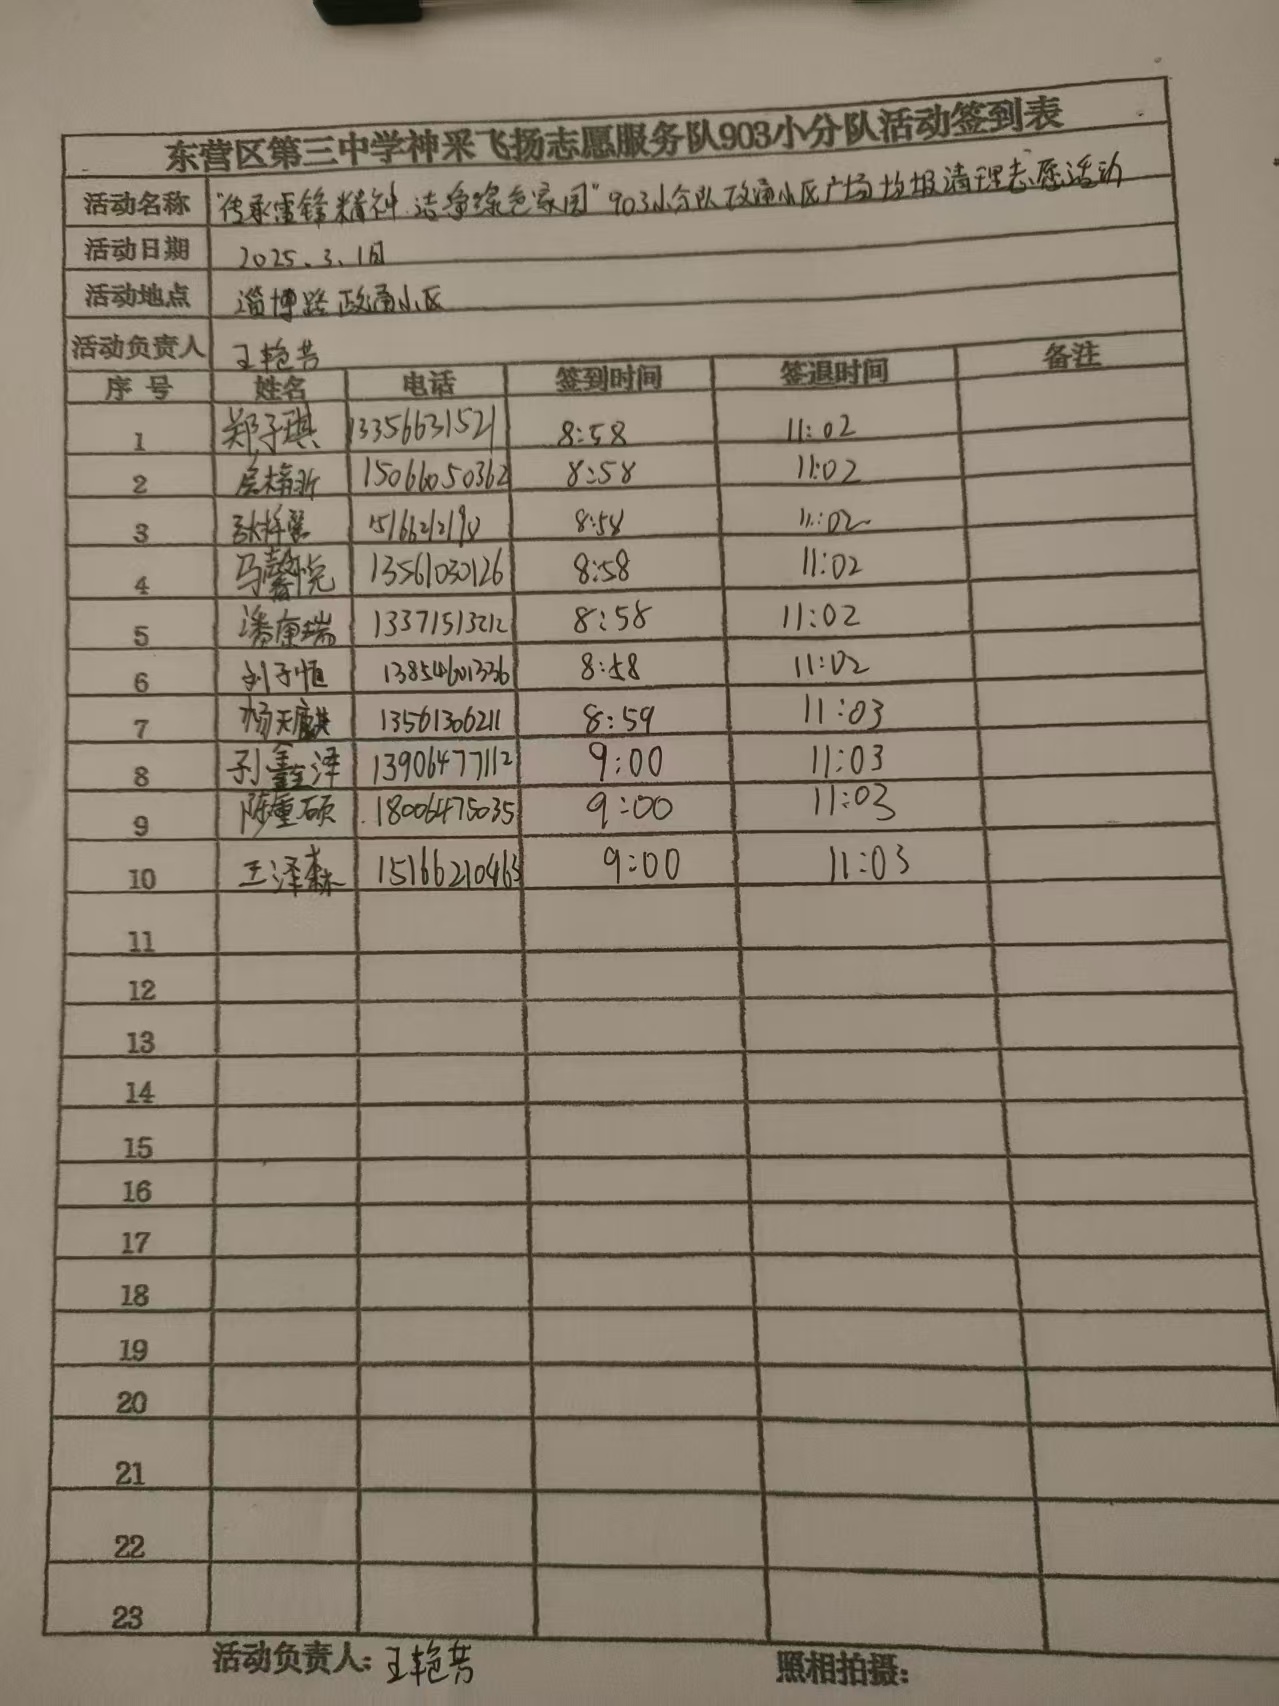 东营区第三中学神采飞扬志愿服务队903小分队活动签到表
活动名称 "传承雷锋精神.洁净绿色家园"903小分队政通小区广场垃圾清理志愿活动
活动日期 2025.3.16
活动地点 淄博路政通小区
活动负责人 王艳芳
序号 姓名 电话 签到时间 签退时间 备注
1 郑子琪 13356631521 8:58 11:02
2 15066050362 8:58 11:02
3 8:58 11:02
4 马馨悦 13561030126 8:58 11:02
5 潘康瑞 13371513212 8:58 11:02
6 刘子恒 13854601336 8:58 11:02
7 杨天麒 13561306211 8:59 11:03
8 孙鑫泽 13906477112 9:00 11:03
9 陈重硕 18006475035 9:00 11:03
10 王泽森 15166210463 9:00 11:03
11
12
13
14
15
16
17
18
19
20
21
22
23
活动负责人: 王艳芳 照相拍摄: